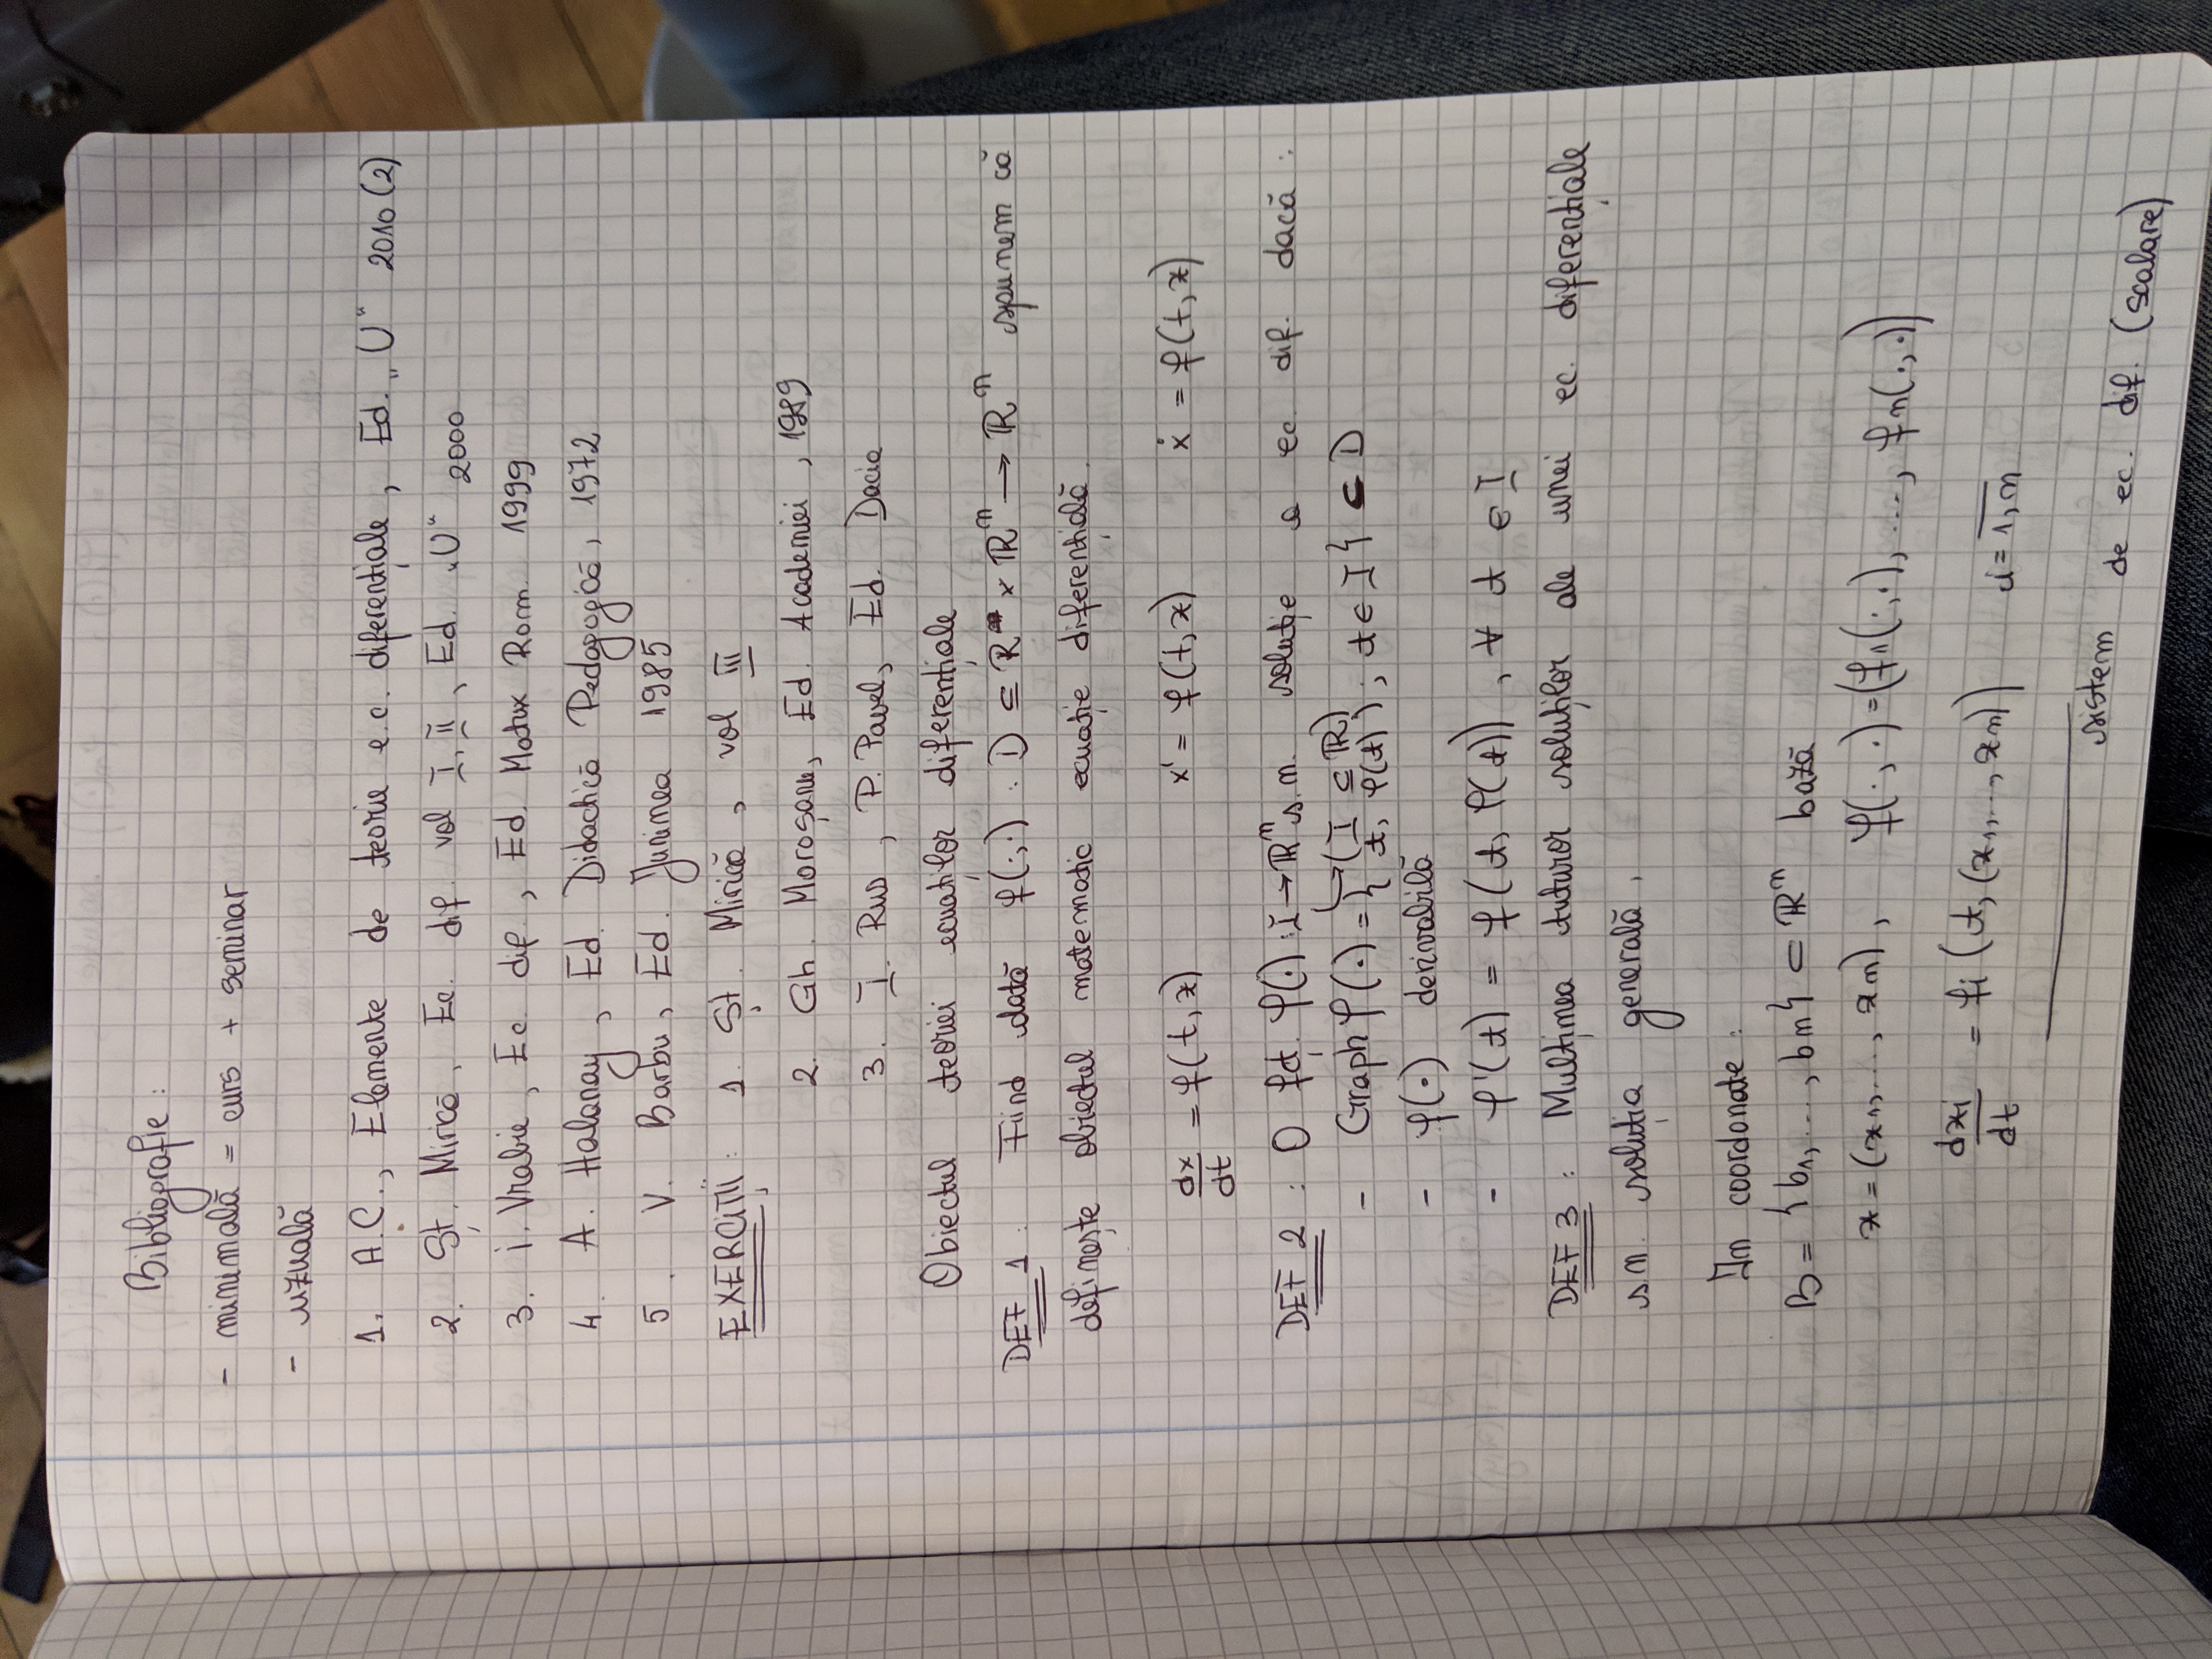 Bibliografie :
- minimală = curs + seminar
- uzuală
1. A.C., Elemente de teorie e.c. diferențiale, Ed. „U" 2010 (2)
2. Șt. Mirică, Ec. dif. vol I, II, Ed. „U" 2000
3. I. Vrabie, Ec. dif., Ed. Matrix Rom. 1999
4. A. Halanay, Ed. Didactică Pedagogică, 1972
5. V. Barbu, Ed. Junimea 1985
EXERCIȚII : 1. Șt. Mirică, vol III
2. Gh. Moroșanu, Ed. Academiei, 1989
3. I. Rus, P. Pavel, Ed. Dacia
Obiectul teoriei ecuaților diferențiale
DEF 1 : Fiind dată f(·,·) : D ⊆ R × ℝⁿ → ℝⁿ spunem că
definește obiectul matematic ecuație diferențială.
dx/dt = f(t, x) x' = f(t, x) ẋ = f(t, x)
DEF 2 : O fct. φ(·) : I → ℝⁿ s.n. soluție a ec. dif. dacă :
(I ⊆ ℝ)
- Graph φ(·) = {(t, φ(t)) ; t ∈ I} ⊂ D
- φ(·) derivabilă
- φ'(t) = f(t, φ(t)), ∀ t ∈ I
DEF 3 : Mulțimea tuturor soluților ale unei ec. diferențiale
s.n. soluția generală.
În coordonate :
B = {b1, ..., bn} ⊂ ℝⁿ bază
x = (x1, ..., xn), f(·,·) = (f1(·,·), ..., fn(·,·))
dxi/dt = fi (t, (x1, ..., xn)) i = 1,n
sistem de ec. dif. (scalare)